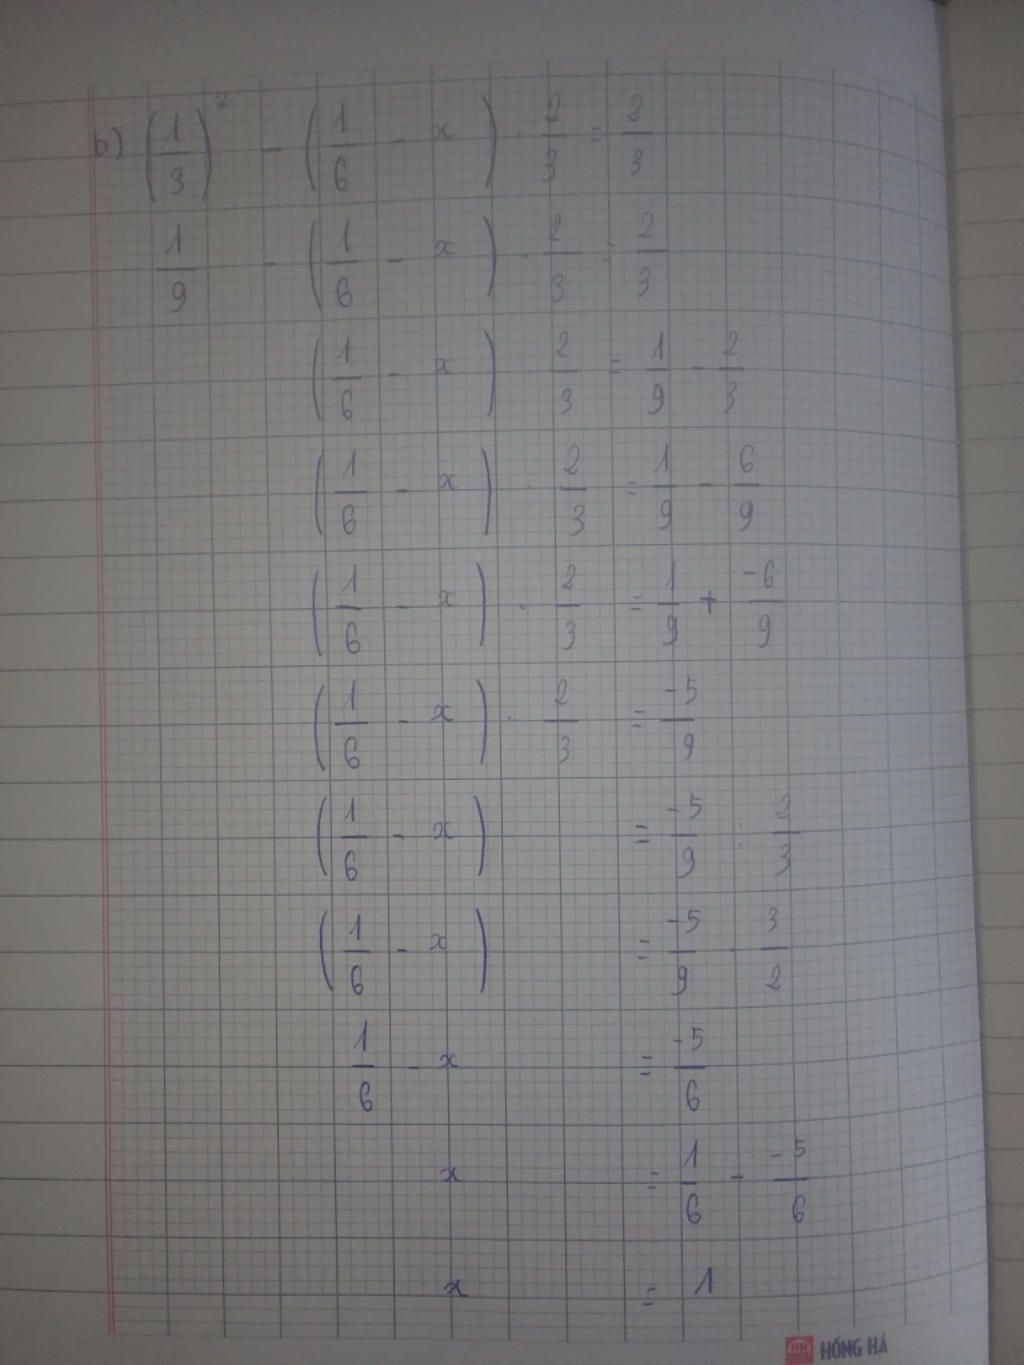 b) (1/3)² - (1/6 - x) . 2/3 = 2/3
1/9 - (1/6 - x) . 2/3 = 2/3
(1/6 - x) . 2/3 = 1/9 - 2/3
(1/6 - x) . 2/3 = 1/9 - 6/9
(1/6 - x) . 2/3 = 1/9 + -6/9
(1/6 - x) . 2/3 = -5/9
(1/6 - x) = -5/9 : 2/3
(1/6 - x) = -5/9 . 3/2
1/6 - x = -5/6
x = 1/6 - -5/6
x = 1
HỒNG HÀ